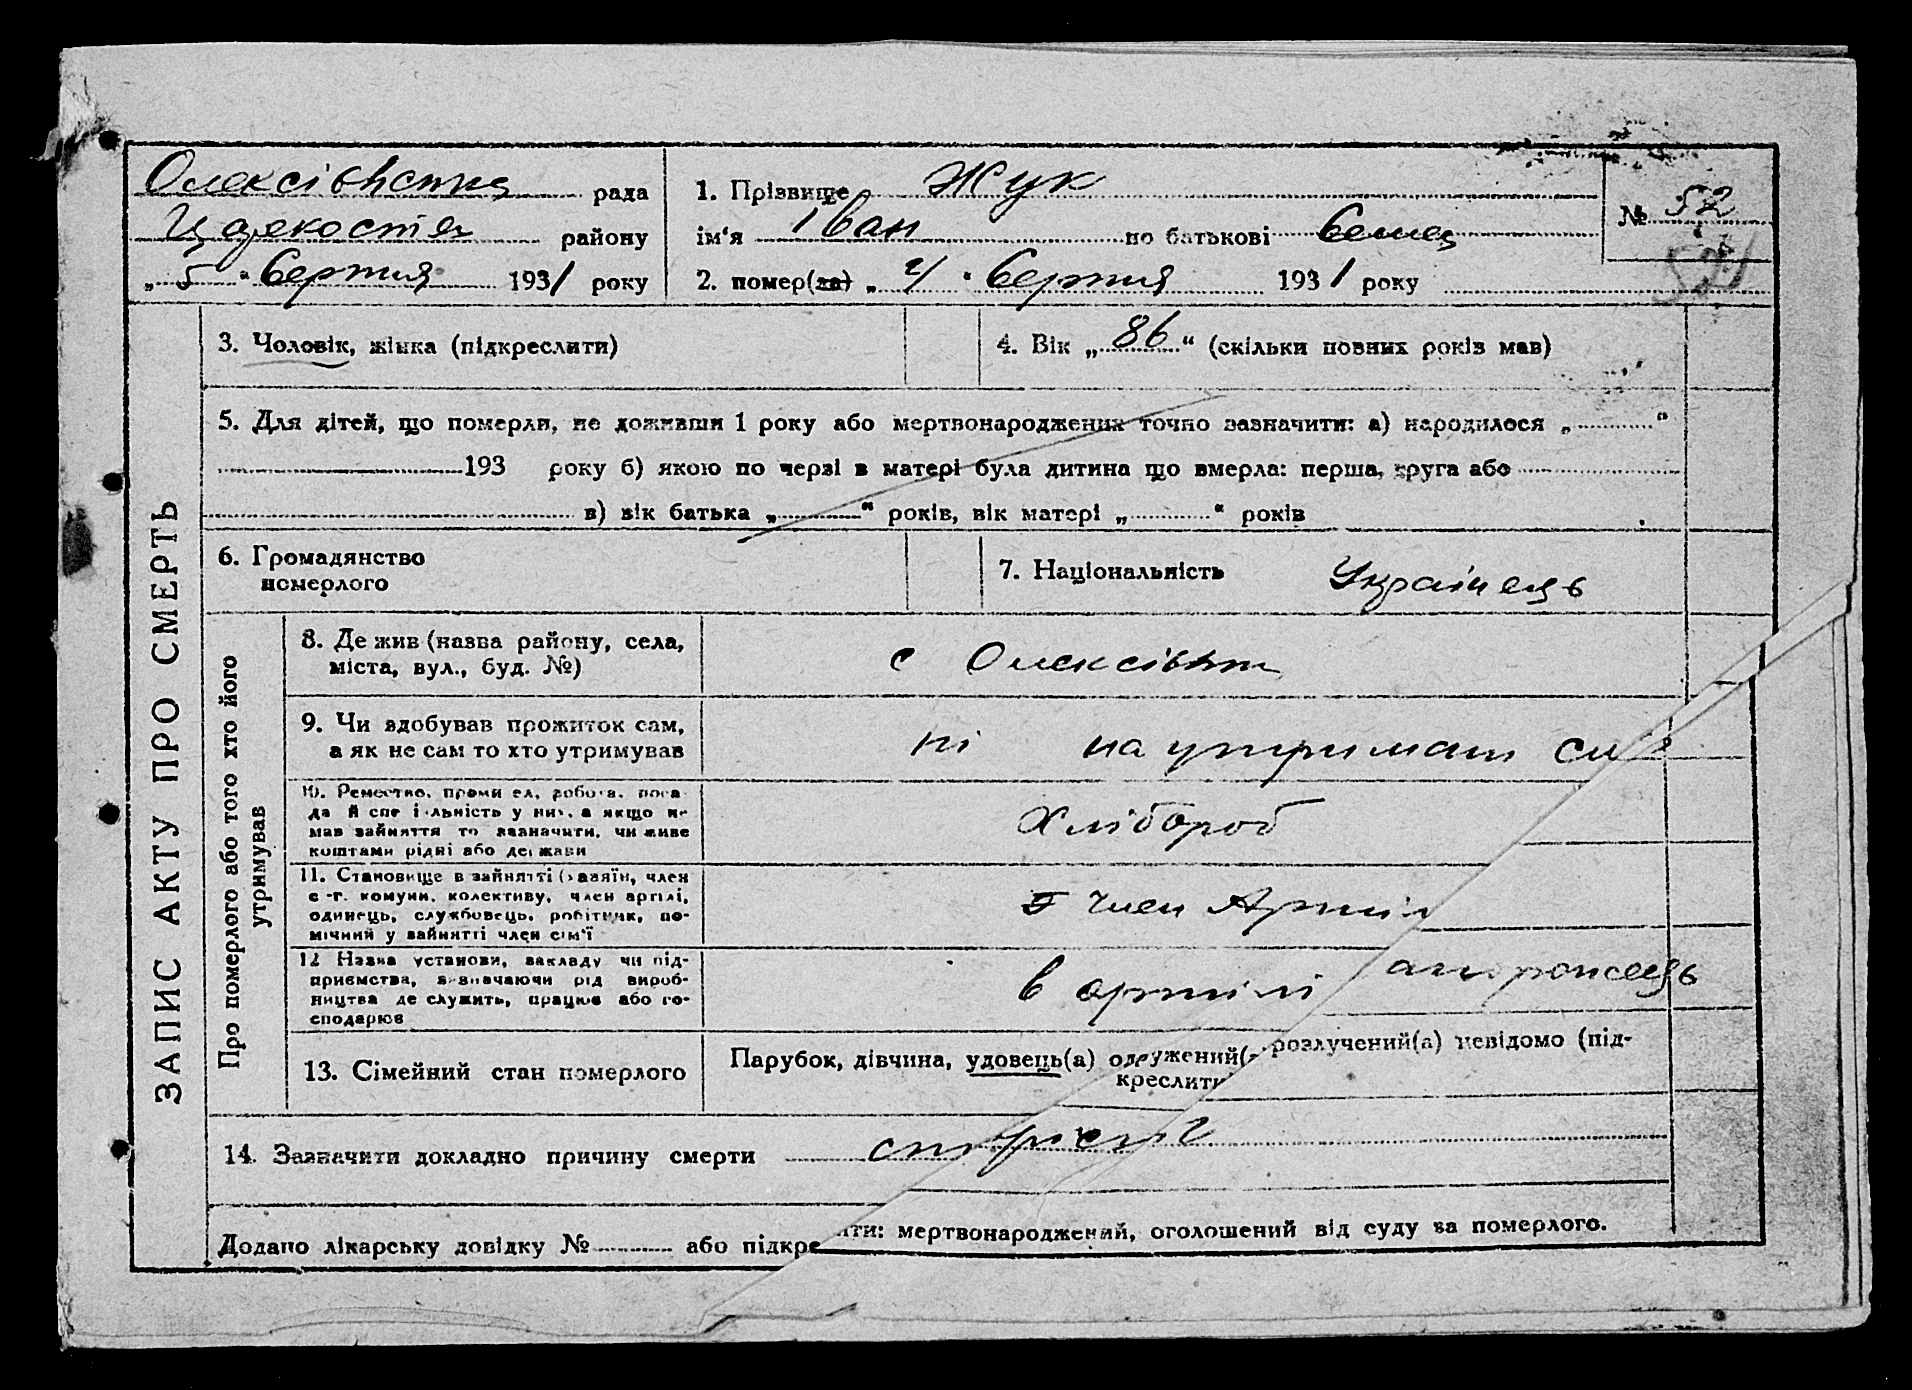 Олексівська рада
району
„ 5 “ Серпня 1931 року
1. Прізвище Жук
ім'я Іван по батькові Семец
2. помер(ла) „ 4 “ Серпня 1931 року
№ 52
521
ЗАПИС АКТУ ПРО СМЕРТЬ
3. Чоловік, жінка (підкреслити)
4. Вік „ 86 “ (скільки повних років мав)
5. Для дітей, що померли, не доживши 1 року або мертвонароджених точно зазначити: а) народилося „ “
193 року б) якою по черзі в матері була дитина що вмерла: перша, друга або
в) вік батька „ “ років, вік матері „ “ років
6. Громадянство
померлого
7. Національність Українець
Про померлого або того хто його
утримував
8. Де жив (назва району, села,
міста, вул., буд. №)
с Олексівки
9. Чи здобував прожиток сам,
а як не сам то хто утримував
ні на утриман
10. Ремество, промисел, робота, поса-
да й спеціяльність у них, а якщо не
мав зайняття то зазначити, чи живе
коштами рідні або держави
Хлібороб
11. Становище в зайнятті (хазяїн, член
с.-г. комуни, колективу, член артілі,
одинець, службовець, робітник, по-
мічний у зайнятті член сім'ї
член Артіл
12 Назва установи, закладу чи під-
приємства, зазначаючи рід вироб-
ництва де служить, працює або го-
сподарює
в артілі
13. Сімейний стан померлого
Парубок, дівчина, удовець(а) одружений( розлучений(а) невідомо (під-
креслити
14. Зазначити докладно причину смерти старість
Додано лікарську довідку № або підкреслити: мертвонароджений, оголошений від суду за померлого.